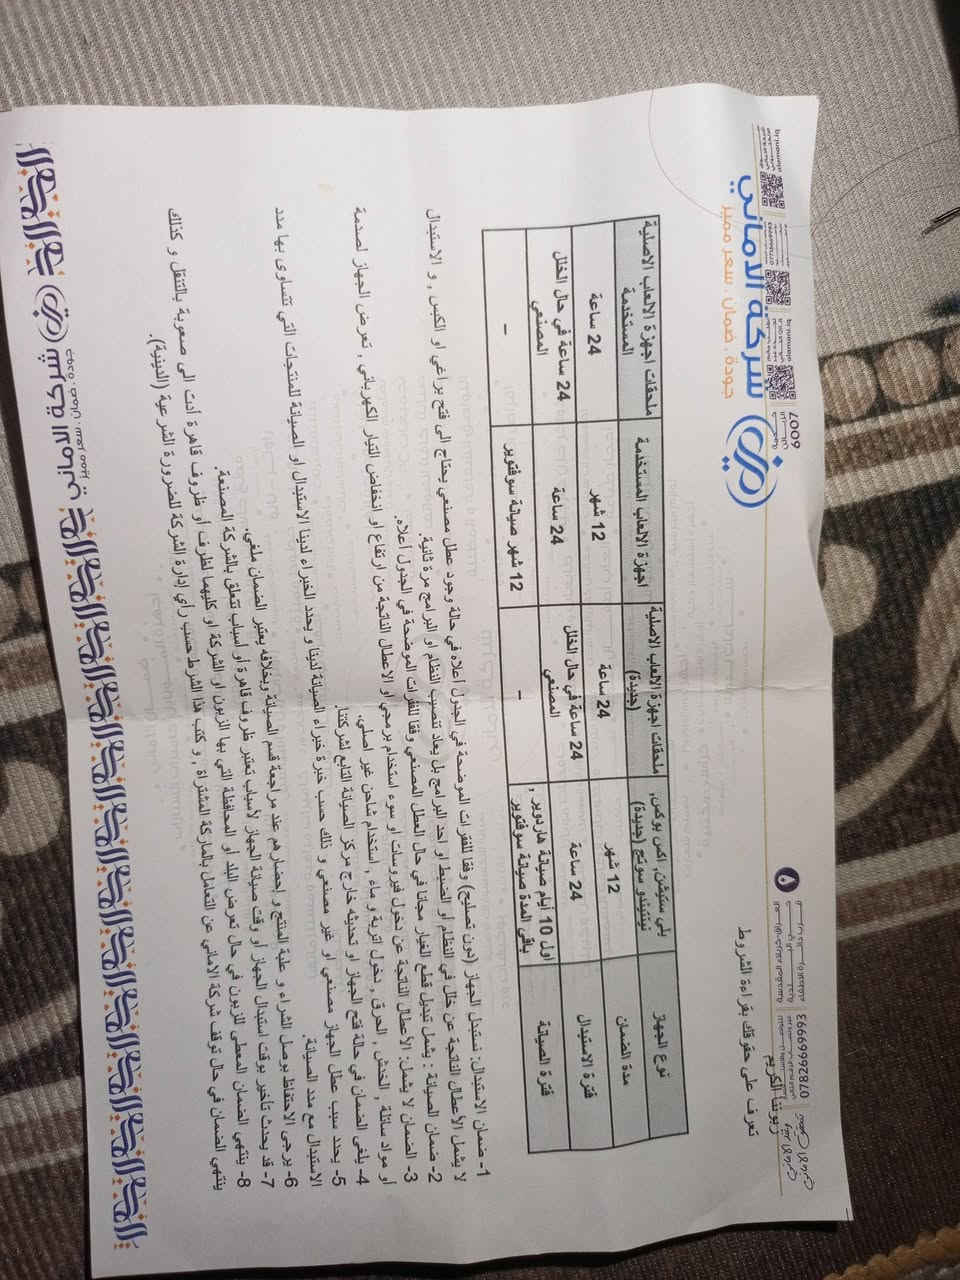 شركة الاماني
جودة . ضمان . سعر مميز
07829669993
زبوننا الكريم
تعرف على حقوقك بقراءة الشروط
نوع الجهاز | بلي ستيشن, اكس بوكس, نينتيندو سوتج (جديدة) | ملحقات اجهزة الالعاب الاصلية (جديدة) | اجهزة الالعاب المستخدمة | ملحقات اجهزة الالعاب الاصلية المستخدمة
مدة الضمان | 12 شهر | 24 ساعة | 12 شهر | 24 ساعة
فترة الاستبدال | 24 ساعة | 24 ساعة في حال الخلل المصنعي | 24 ساعة | 24 ساعة في حال الخلل المصنعي
فترة الصيانة | اول 10 أيام صيانة هاردوير , باقي المدة صيانة سوفتوير | – | 12 شهر صيانة سوفتوير | –
1- ضمان الاستبدال: نستبدل الجهاز (دون تصليح) وفقا للفقرات الموضحة في الجدول أعلاه في حالة وجود عطل مصنعي يحتاج الى فتح براغي او الكبس , و الاستبدال
لا يشمل الأعطال الناتجة عن خلل في النظام أو الضبط او احد البرامج بل يعاد تنصيب النظام او البرامج مرة ثانية.
2- ضمان الصيانة : يشمل تبديل قطع الغيار مجانا في حال العطل المصنعي وفقا للفقرات الموضحة في الجدول أعلاه.
3- الضمان لا يشمل: الأعطال الناتجة عن دخول فيروسات او سوء استخدام برمجي او الاعطال الناتجة من ارتفاع او انخفاض التيار الكهربائي , تعرض الجهاز لصدمة
او مواد سائلة , الخدش , الحرق , دخول اتربة و ماء , استخدام شاحن غير اصلي.
4- يلغى الضمان في حالة فتح الجهاز او تحديثه خارج مركز الصيانة التابع لشركتنا.
5- يحدد سبب عطل الجهاز مصنعي او غير مصنعي و ذلك حسب خبرة خبراء الصيانة لدينا و يحدد الخبراء لدينا الاستبدال او الصيانة للمنتجات التي تتساوى بها مدد
الاستبدال مع مدد الصيانة.
6- يرجى الاحتفاظ بوصل الشراء و علبة المنتج و إحضارهم عند مراجعة قسم الصيانة وبخلافه يعتبر الضمان ملغي.
7- قد يحدث تأخير بوقت استبدال الجهاز او وقت صيانة الجهاز لأسباب تعتبر ظروف قاهرة أو أسباب تتعلق بالشركة المصنعة.
8- ينتهي الضمان المعطى للزبون في حال تعرض البلد او المحافظة التي بها الزبون او الشركة او كليهما لظرف او ظروف قاهرة أدت الى صعوبة بالتنقل و كذلك
ينتهي الضمان في حال توقف شركة الاماني عن التعامل بالماركة المشتراة , و كتب هذا الشرط حسب رأي إدارة الشركة للضرورة الشرعية (الدينية).
شركة الاماني